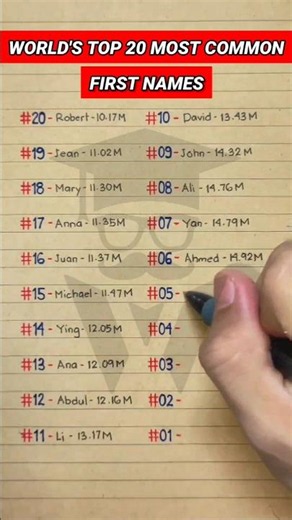 WORLD'S TOP 20 MOST COMMON
FIRST NAMES
#20 - Robert - 10.17M
#19 - Jean - 11.02M
#18 - Mary - 11.30M
#17 - Anna - 11.35M
#16 - Juan - 11.37M
#15 - Michael - 11.47M
#14 - Ying - 12.05M
#13 - Ana - 12.09M
#12 - Abdul - 12.16M
#11 - Li - 13.17M
#10 - David - 13.43M
#09 - John - 14.32M
#08 - Ali - 14.76M
#07 - Yan - 14.79M
#06 - Ahmed - 14.92M
#05 -
#04 -
#03 -
#02 -
#01 -